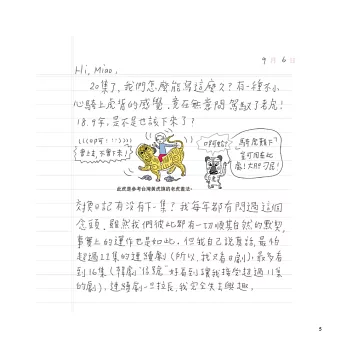 9月6日
Hi, Miao,
20集了,我們怎麼能寫這麼久?有一種不小
心騎上虎背的感覺,竟在無意間駕馭了老虎!
18.9年,是不是也該下來了?
(會上去,不會下來)
騎虎難下
豈可用在此
處!大胆刁民!
此虎是參考台灣黃虎旗的老虎畫法
交換日記有沒有下一集?我每年都有閃過這個
念頭,雖然我們彼此都有一切順其自然的默契,
事實上的運作也是如此,但我自己說真話,最怕
超過12集的連續劇(所以,我只看日劇),最多看
到16集(韓劇"信號"好看到讓我接受超過11集
的劇),連續劇一旦拉長,我完全失去興趣。
5